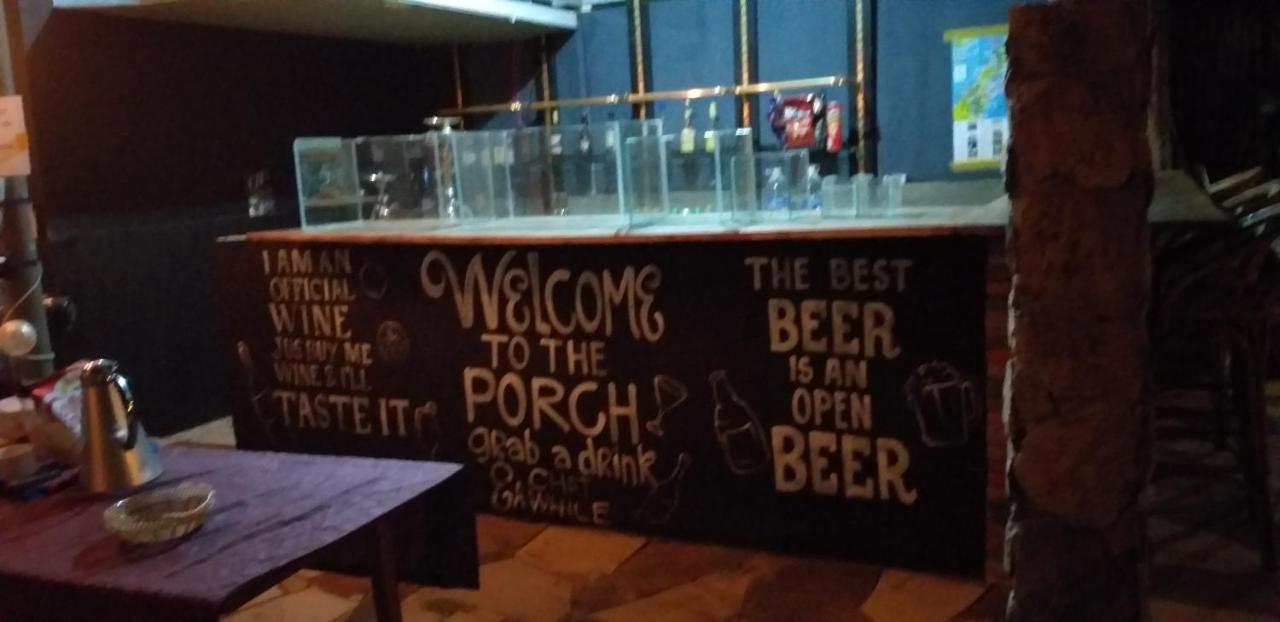 I AM AN
OFFICIAL
WINE
JUS BUY ME
WINE & I'LL
TASTE IT
WELCOME
TO THE
PORCH
grab a drink
& CHAT
AWHILE
THE BEST
BEER
IS AN
OPEN
BEER